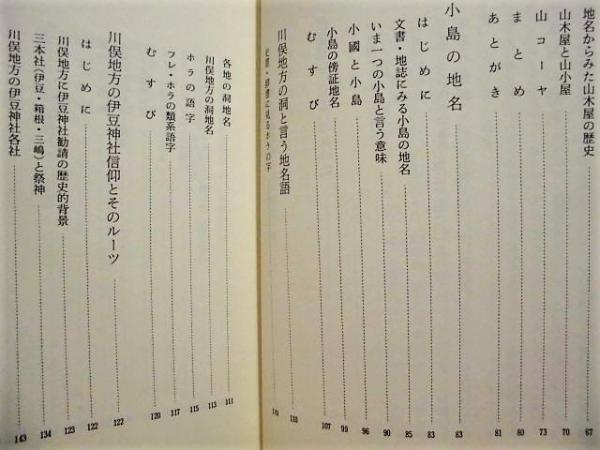 地名からみた山木屋の歴史 67
山木屋と山小屋 70
山コーヤ 73
まとめ 80
あとがき 81
小島の地名 83
はじめに 83
文書・地誌にみる小島の地名 85
いま一つの小島と言う意味 90
小國と小島 96
小島の傍証地名 99
むすび 107
川俣地方の洞と言う地名語 110
各地の洞地名 111
川俣地方の洞地名 113
ホラの語字 115
フレ・ホラの類系語字 117
むすび 120
川俣地方の伊豆神社信仰とそのルーツ 122
はじめに 122
川俣地方に伊豆神社勧請の歴史的背景 123
三本社(伊豆・箱根・三嶋)と祭神 134
川俣地方の伊豆神社各社 143